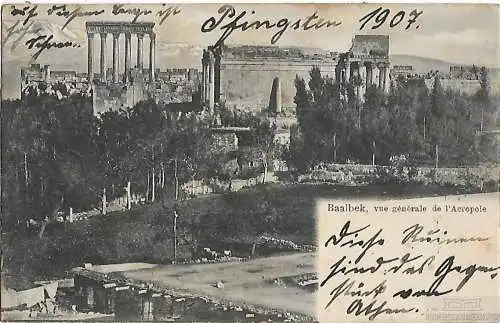 auf diesem Wege ist
Pfingsten 1907.
Baalbek, vue générale de l'Acropole
Diese Ruinen
sind das Gegen-
stück von
Athen.